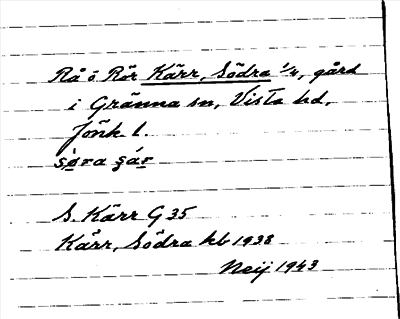 Rå ö Rör Kärr, Södra 1/4, gård
i Gränna sn, Vista hd,
Jönk l.
S. Kärr G 35
Kärr, Södra kb 1938
Neij 1943